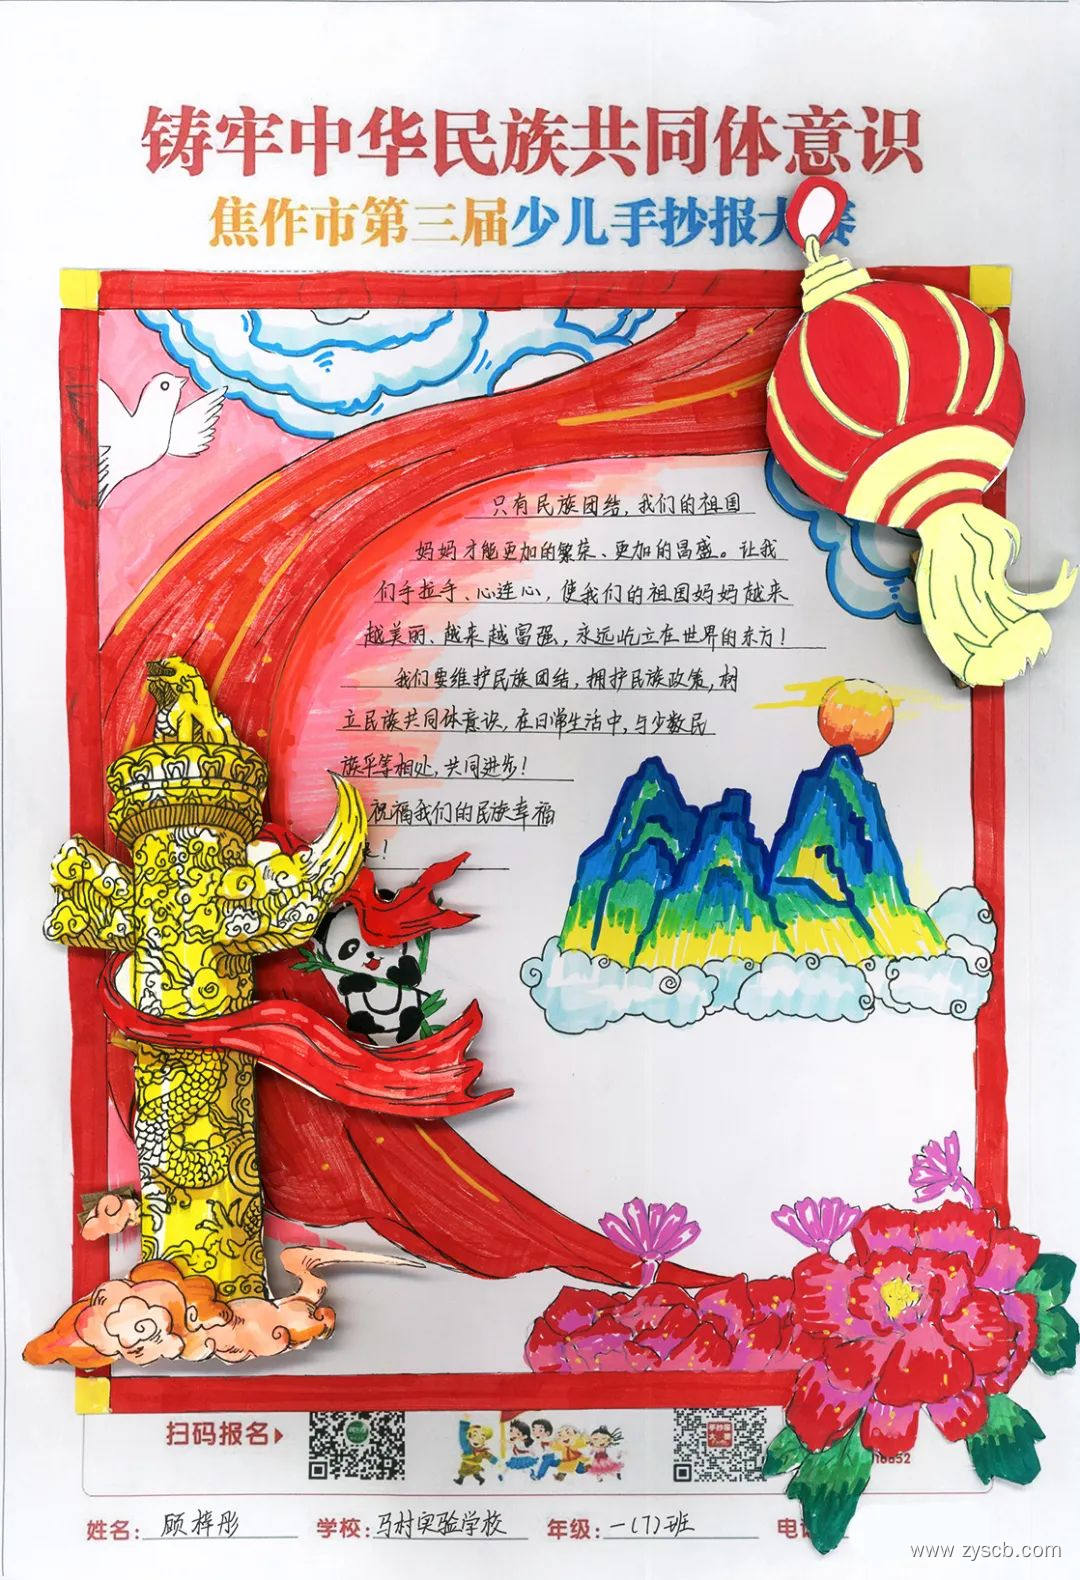 铸牢中华民族共同体意识
焦作市第三届少儿手抄报大赛
只有民族团结,我们的祖国
妈妈才能更加的繁荣、更加的昌盛。让我
们手拉手、心连心,使我们的祖国妈妈越来
越美丽、越来越富强,永远屹立在世界的东方!
我们要维护民族团结,拥护民族政策,树
立民族共同体意识,在日常生活中,与少数民
族平等相处,共同进步!
祝福我们的民族幸福
!
扫码报名
姓名: 顾梓彤 学校: 马村实验学校 年级: 一(7)班 电
www.zyscb.com